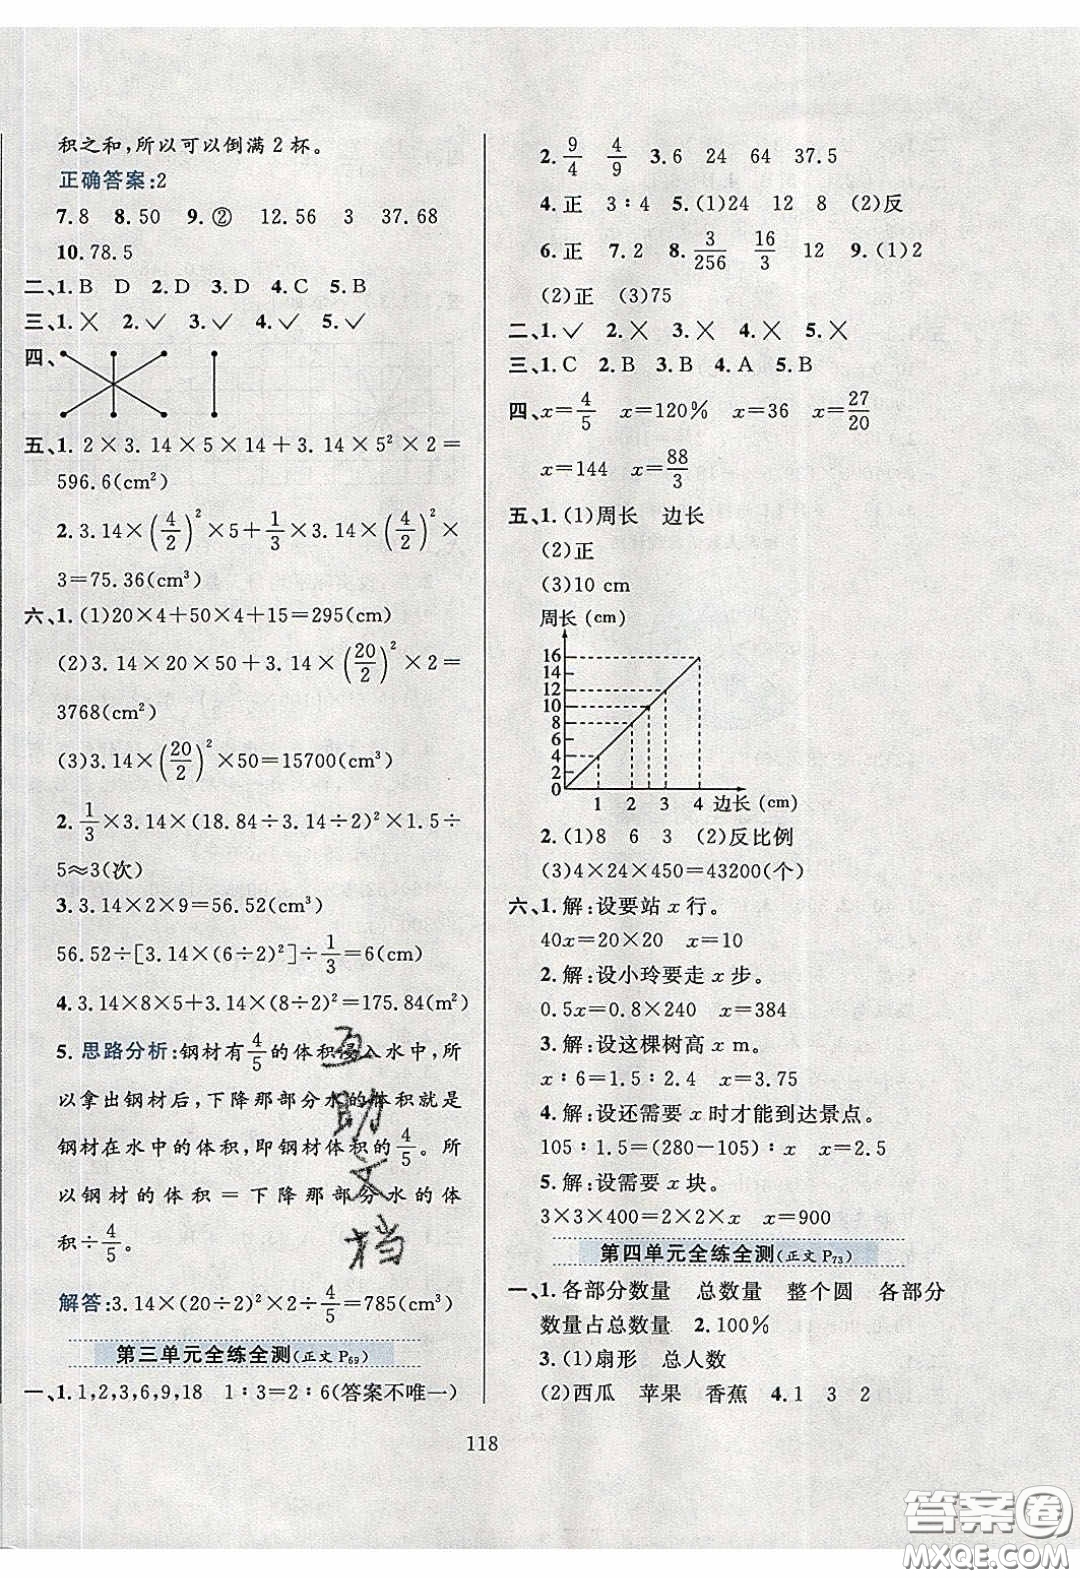 积之和,所以可以倒满2杯。
正确答案:2
7.8 8.50 9.② 12.56 3 37.68
10.78.5
二、1.B D 2.D 3.D 4.C 5.B
三、1.╳ 2.✓ 3.✓ 4.✓ 5.✓
四、
五、1.2×3.14×5×14+3.14×5²×2=
596.6(cm²)
2.3.14×(4/2)²×5+1/3×3.14×(4/2)²×
3=75.36(cm³)
六、1.(1)20×4+50×4+15=295(cm)
(2)3.14×20×50+3.14×(20/2)²×2=
3768(cm²)
(3)3.14×(20/2)²×50=15700(cm³)
2.1/3×3.14×(18.84÷3.14÷2)²×1.5÷
5≈3(次)
3.3.14×2×9=56.52(cm³)
56.52÷[3.14×(6÷2)²]÷1/3=6(cm)
4.3.14×8×5+3.14×(8÷2)²=175.84(m²)
5.思路分析:钢材有4/5的体积浸入水中,所
以拿出钢材后,下降那部分水的体积就是
钢材在水中的体积,即钢材体积的4/5。所
以钢材的体积=下降那部分水的体
积÷4/5。
解答:3.14×(20÷2)²×2÷4/5=785(cm³)
第三单元全练全测(正文P69)
一、1.1,2,3,6,9,18 1∶3=2∶6(答案不唯一)
2.9/4 4/9 3.6 24 64 37.5
4.正 3∶4 5.(1)24 12 8 (2)反
6.正 7.2 8.3/256 16/3 12 9.(1)2
(2)正 (3)75
二、1.✓ 2.╳ 3.╳ 4.╳ 5.╳
三、1.C 2.B 3.B 4.A 5.B
四、x=4/5 x=120% x=36 x=27/20
x=144 x=88/3
五、1.(1)周长 边长
(2)正
(3)10 cm
周长(cm)
16
14
12
10
8
6
4
2
0
1 2 3 4 边长(cm)
2.(1)8 6 3 (2)反比例
(3)4×24×450=43200(个)
六、1.解:设要站x行。
40x=20×20 x=10
2.解:设小玲要走x步。
0.5x=0.8×240 x=384
3.解:设这棵树高x m。
x∶6=1.5∶2.4 x=3.75
4.解:设还需要x时才能到达景点。
105∶1.5=(280-105)∶x x=2.5
5.解:设需要x块。
3×3×400=2×2×x x=900
第四单元全练全测(正文P73)
一、1.各部分数量 总数量 整个圆 各部分
数量占总数量 2.100%
3.(1)扇形 总人数
(2)西瓜 苹果 香蕉 4.1 3 2
118
互助文档
答案圈
MXQE.COM